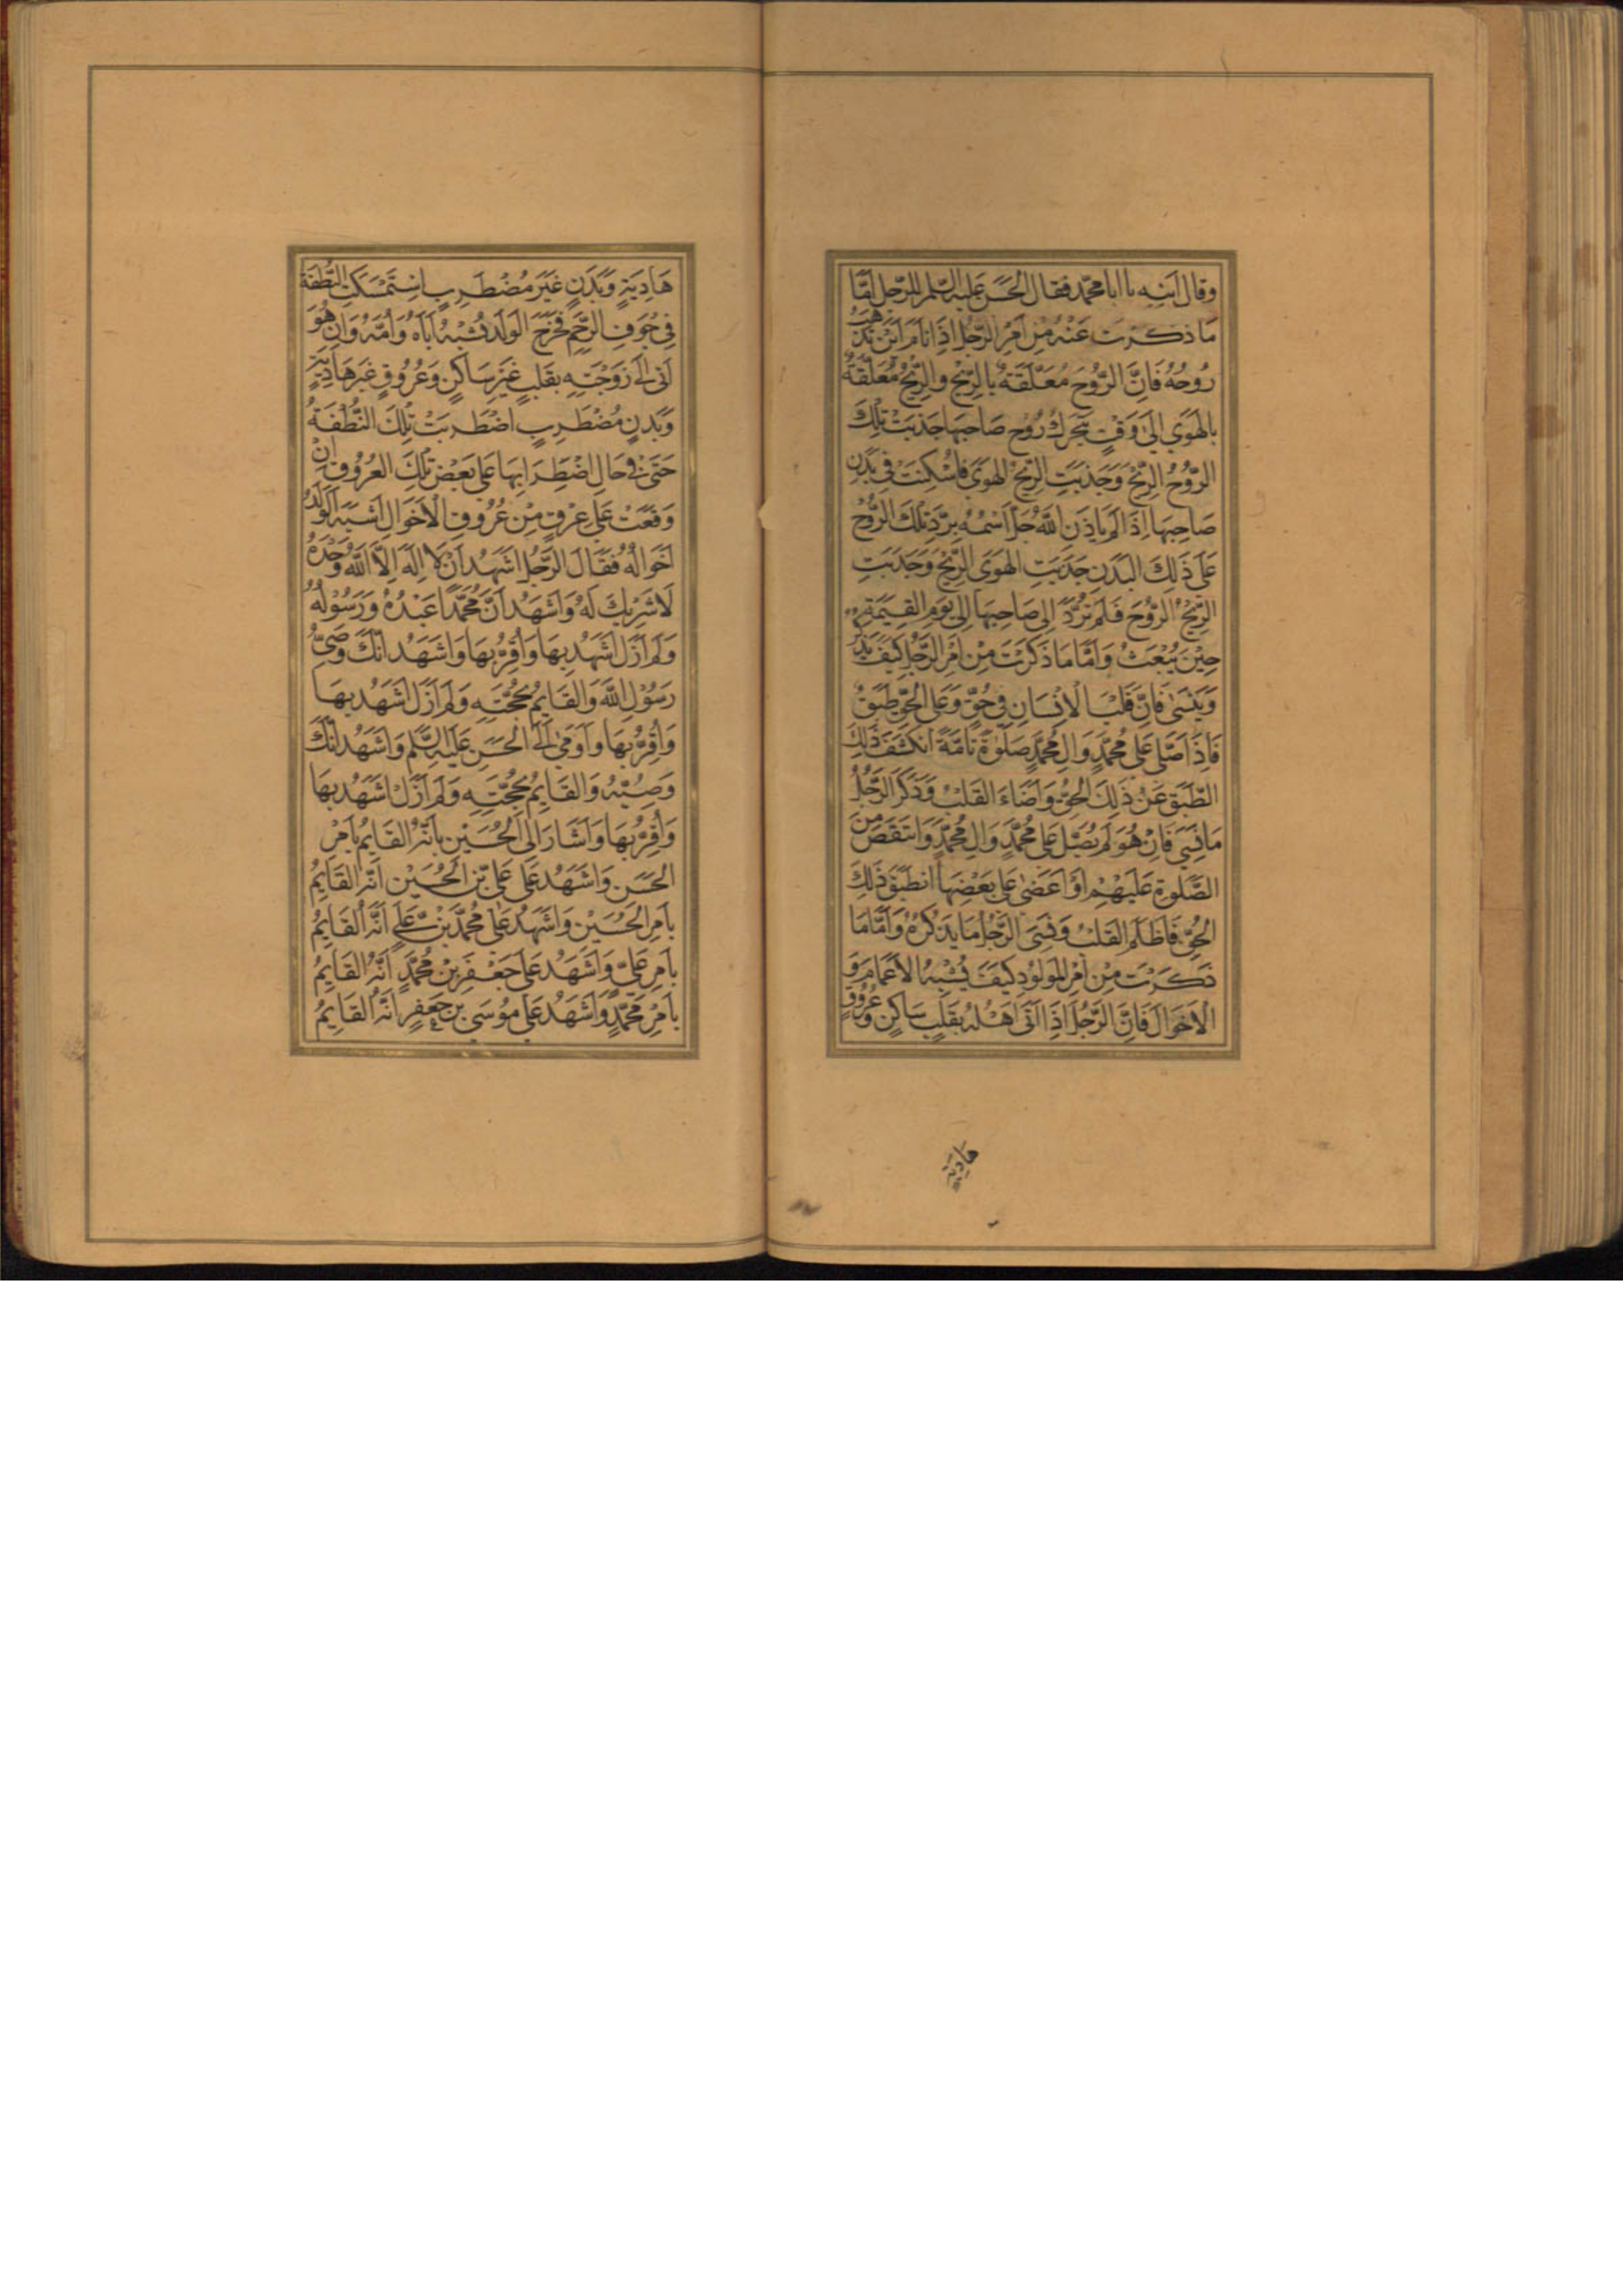 وقال انبه یا ابا محمد فقال الحسن علیه السلم للرجل امّا
ما ذكرت عنه من امر الرجل اذا نام اين تذهب
روحه فان الروح معلقة بالريح والريح معلقة
بالهوى الى وقت يتحرك روح صاحبها جذبت تلك
الروح الريح وجذبت الريح الهوى فاسكنت في بدن
صاحبها اذا لم ياذن الله جل اسمه برد تلك الروح
على ذلك البدن جذبت الهوى الريح وجذبت
الريح الروح فلم ترد الى صاحبها الى يوم القيمة
حين يبعث واما ما ذكرت من امر الرجل كيف يذكر
وينسى فان قلب الانسان في حق وعلى الحق طبق
فاذا صلى على محمد وال محمد صلوة تامة انكشف ذلك
الطبق عن ذلك الحق واضاء القلب وذكر الرجل
ما نسي فان هو لم يصل على محمد وال محمد وانتقص من
الصلوة عليهم او اعضى على بعضها انطبق ذلك
الحق فاظلم القلب ونسى الرجل ما يذكره واما ما
ذكرت من امر المولود كيف يشبه الاعمام و
الاخوال فان الرجل اذا اتى اهله بقلب ساكن وعروق
هادية
هادية وبدن غير مضطرب استمسكت النطفة
في جوف الرحم فخرج الولد يشبه اباه وامه وان هو
اتى الى زوجته بقلب غير ساكن وعروق غير هادية
وبدن مضطرب اضطربت تلك النطفة
حتى في حال اضطرابها على بعض تلك العروق ان
وقعت على عرق من عروق الاخوال اشبه الولد
اخواله فقال الرجل اشهد ان لا اله الا الله وحده
لا شريك له واشهد ان محمدا عبده ورسوله
ولم ازل اشهد بها واقر بها واشهد انك وصي
رسول الله والقايم بحجته ولم ازل اشهد بها
واقر بها واومى الى الحسن عليه السلم واشهد انك
وصيه والقايم بحجته ولم ازل اشهد بها
واقر بها واشار الى الحسين بانه القايم بامر
الحسن واشهد على علي بن الحسين انه القايم
بامر الحسين واشهد على محمد بن علي انه القايم
بامر علي واشهد على جعفر بن محمد انه القايم
بامر محمد واشهد على موسى بن جعفر انه القايم